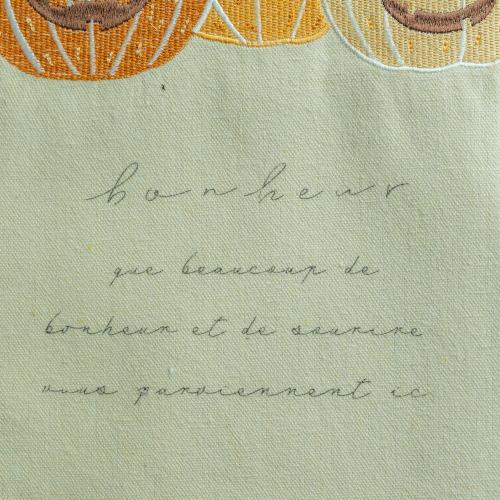 bonheur
que beaucoup de
bonheur et de sourire
vous parviennent ic